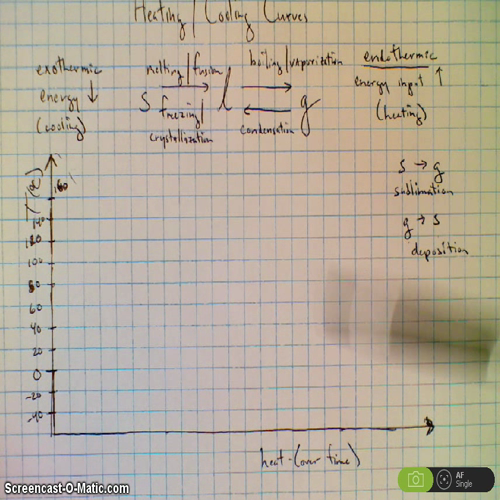 Heating / Cooling Curves
exothermic
energy ↓
(cooling)
melting/fusion
s → l → g
freezing/
crystallization
boiling/vaporization
condensation
endothermic
energy input ↑
(heating)
s → g
sublimation
g → s
deposition
160
140
120
100
80
60
40
20
0
-20
-40
heat-(over time)
Screencast-O-Matic.com
AF
Single